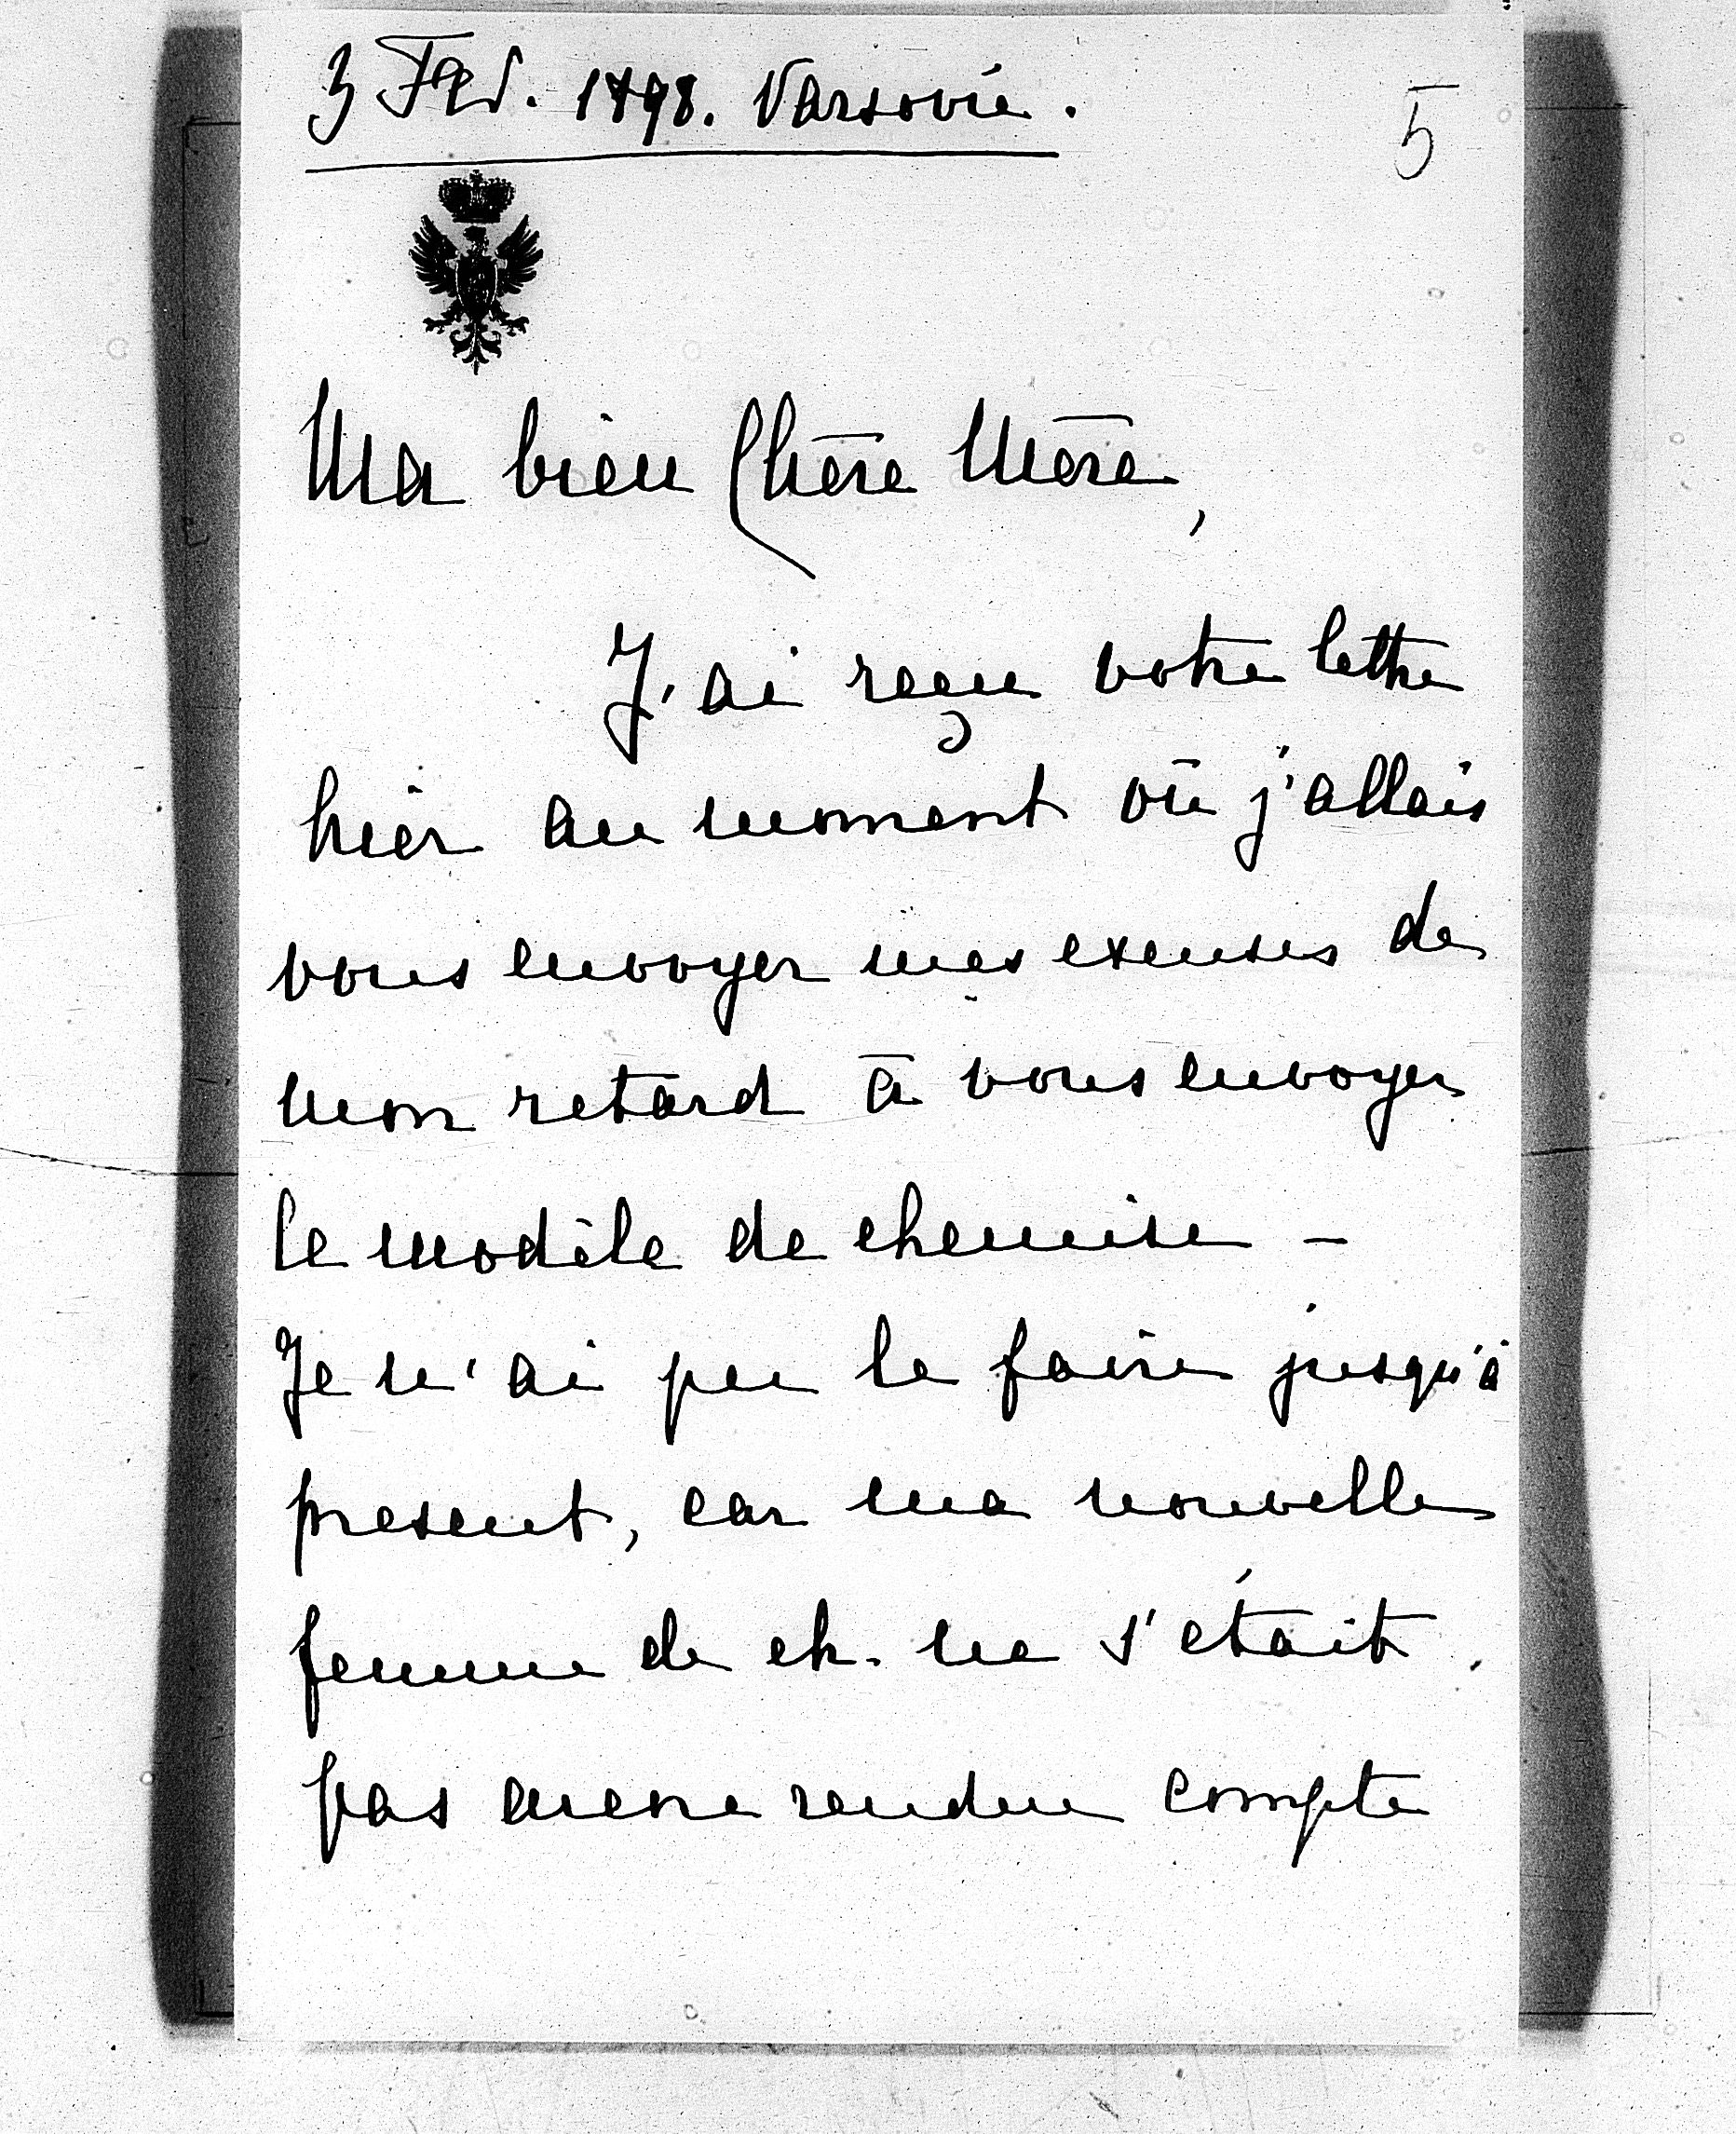 3 Fev. 1898. Varsovie.
5
Ma bien Chère Mère,
J'ai reçu votre lettre
hier au moment où j'allais
vous envoyer mes excuses de
mon retard à vous envoyer
le modèle de chemise –
Je n'ai pu le faire jusqu'à
present, car ma nouvelle
femme de ch. ne s'était
pas encore rendue compte